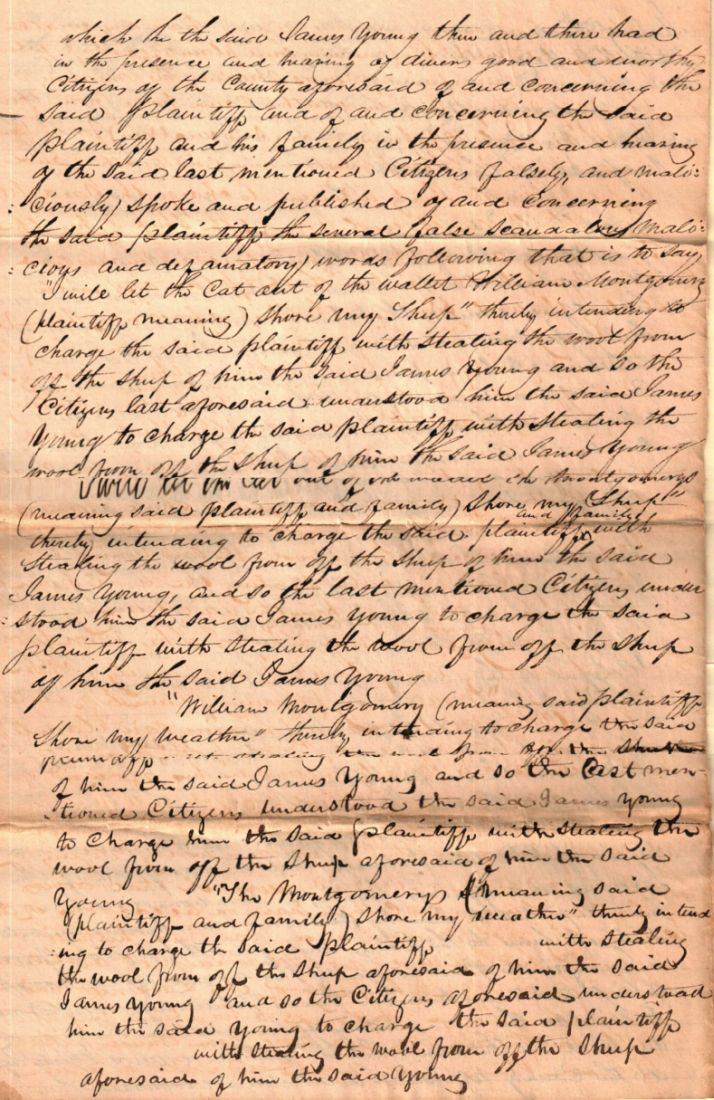 which he the said James Young then and there had
in the presence and hearing of divers good and worthy
Citizens of the County aforesaid of and concerning the
said plaintiff and of and concerning the said
plaintiff and his family in the presence and hearing
of the said last mentioned Citizens falsely, and mali-
:ciously spoke and published of and concerning
the said plaintiff the several false scandalous mali-
:cious and defamatory words following that is to say
"I will let the Cat out of the wallet William Montgomery
(plaintiff meaning) shore my Sheep" thereby intending to
charge the said plaintiff with stealing the wool from
off the sheep of him the said James Young and so the
Citizens last aforesaid understood him the said James
Young to charge the said plaintiff with stealing the
wool from off the sheep of him the said James Young
I will let the cat out of the Montgomerys
(meaning said plaintiff and family) shore my Sheep"
and family
thereby intending to charge the said plaintiff with
stealing the wool from off the sheep of him the said
James Young, and so the last mentioned Citizens under
:stood him the said James Young to charge the said
plaintiff with stealing the wool from off the sheep
of him the said James Young
"William Montgomery (meaning said plaintiff
Shore my weather" thereby intending to charge the said
plaintiff stealing the wool from off the
of him the said James Young and so the last men-
:tioned Citizens understood the said James Young
to charge him the said plaintiff with stealing the
wool from off the sheep aforesaid of him the said
Young "The Montgomerys (meaning said
(plaintiff and family) shore my weather" thereby intend
:ing to charge the said plaintiff with stealing
the wool from off the sheep aforesaid of him the said
James Young and so the Citizens aforesaid understood
him the said Young to charge the said plaintiff
with stealing the wool from off the sheep
aforesaid of him the said Young